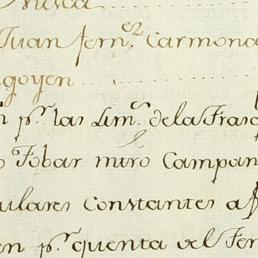 Juan fern.ez Carmona
goyen
n p.r las Lim.s de la Fras
o Tobar miro Campan
ulares Constantes a f
en p.r quenta del Fer